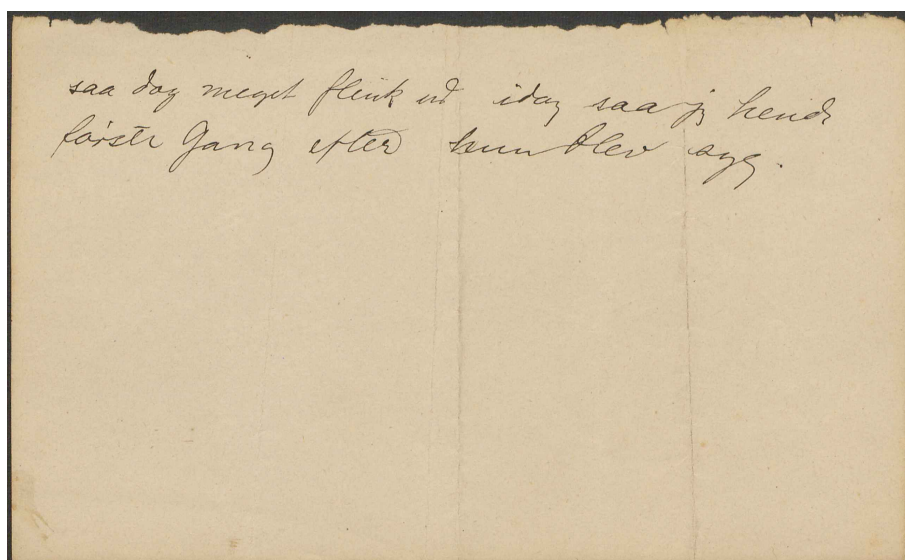 saa dog meget flink ud idag saa jeg hende
første Gang efter hun blev syg.